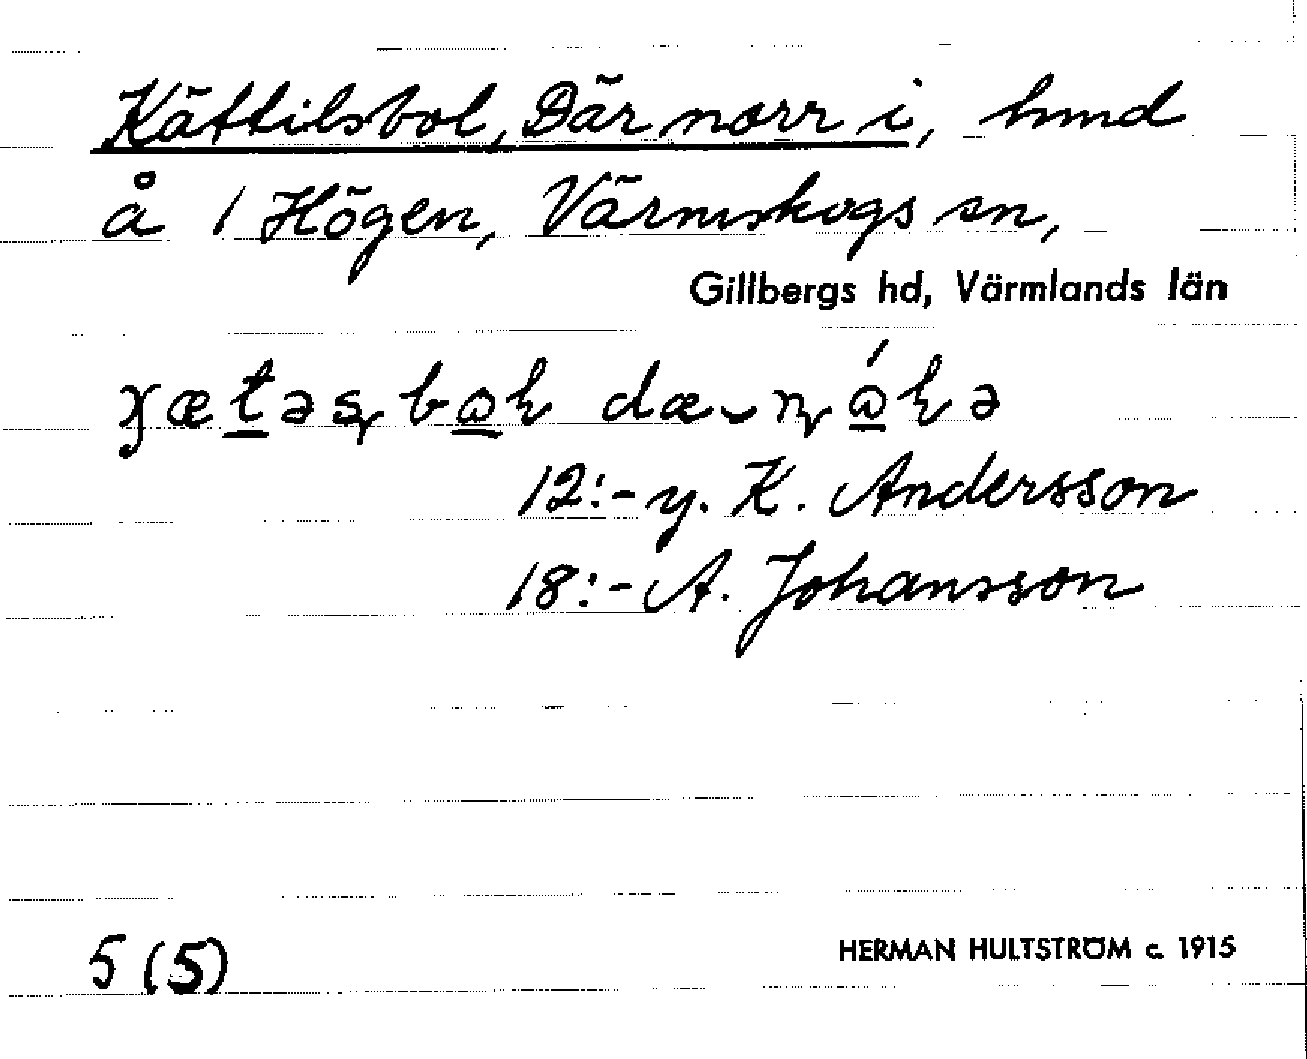 Kättilsbol, Där norr i, hmd
å 1 Högen, Värmskogs sn,
Gillbergs hd, Värmlands län
12:- y. K. Andersson
18:- A. Johansson
5 (5)
HERMAN HULTSTRÖM c. 1915